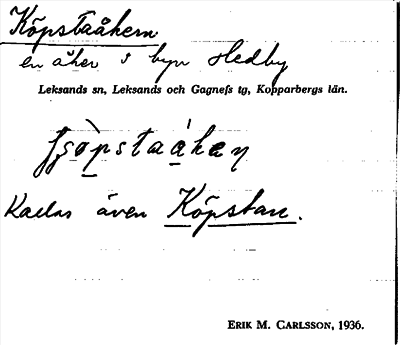 Köpstaåkern
en åker i byn Hedby
Leksands sn, Leksands och Gagnefs tg, Kopparbergs län.
Kallas även Köpstan.
ERIK M. CARLSSON, 1936.